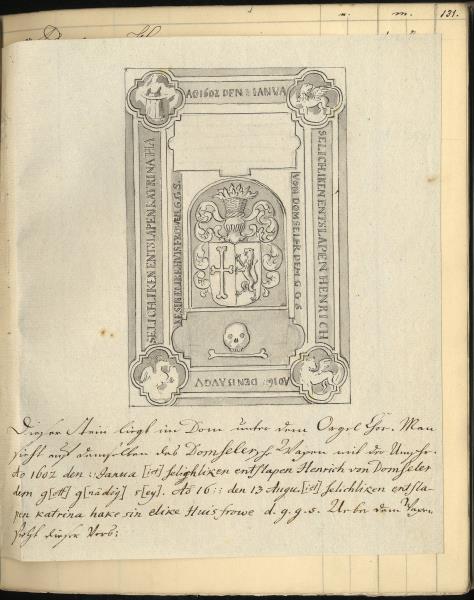 131.
AO 1602 DEN :: IANUA
SELICHLIKEN ENTSLAPEN HENRICH
VON DOMSELER DEM G. G. S
AO 16:: DEN 13 AUGU
SELICHLIKEN ENTSLAPEN KATRINA HA
KE SIN ELIKE HUISFROWE D. G. G. S.
Dieser Stein liegt im Dom unter dem Orgel Chor. Man
sieht auf demselben das Domseler Wapen mit der Umschr.
Ao 1602 den :: Janua [:ri:] selighliken entslapen Henrich von Domseler
dem g[ott] g[nädig] s[ey]. Ao 16 :: den 13 Augu [:st:] selichliken entsla-
pen katrina hake sin elike Huisfrowe d. g. g. s. Ueber dem Wapen
steht dieser Vers: